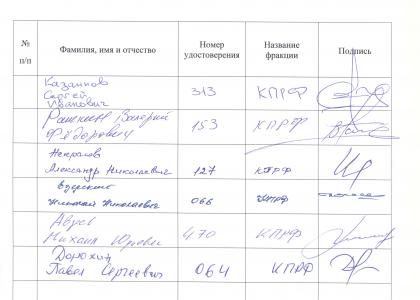 № п/п Фамилия, имя и отчество Номер удостоверения Название фракции Подпись
Казанков
Сергей 313 КПРФ
Иванович
Рашкин Валерий
Фёдорович 153 КПРФ
Некрасов
Александр Николаевич 127 КПРФ
Николай Николаевич 066 КПРФ
Авдеев
Михаил Юрьевич 470 КПРФ
Дорохин
Павел Сергеевич 064 КПРФ